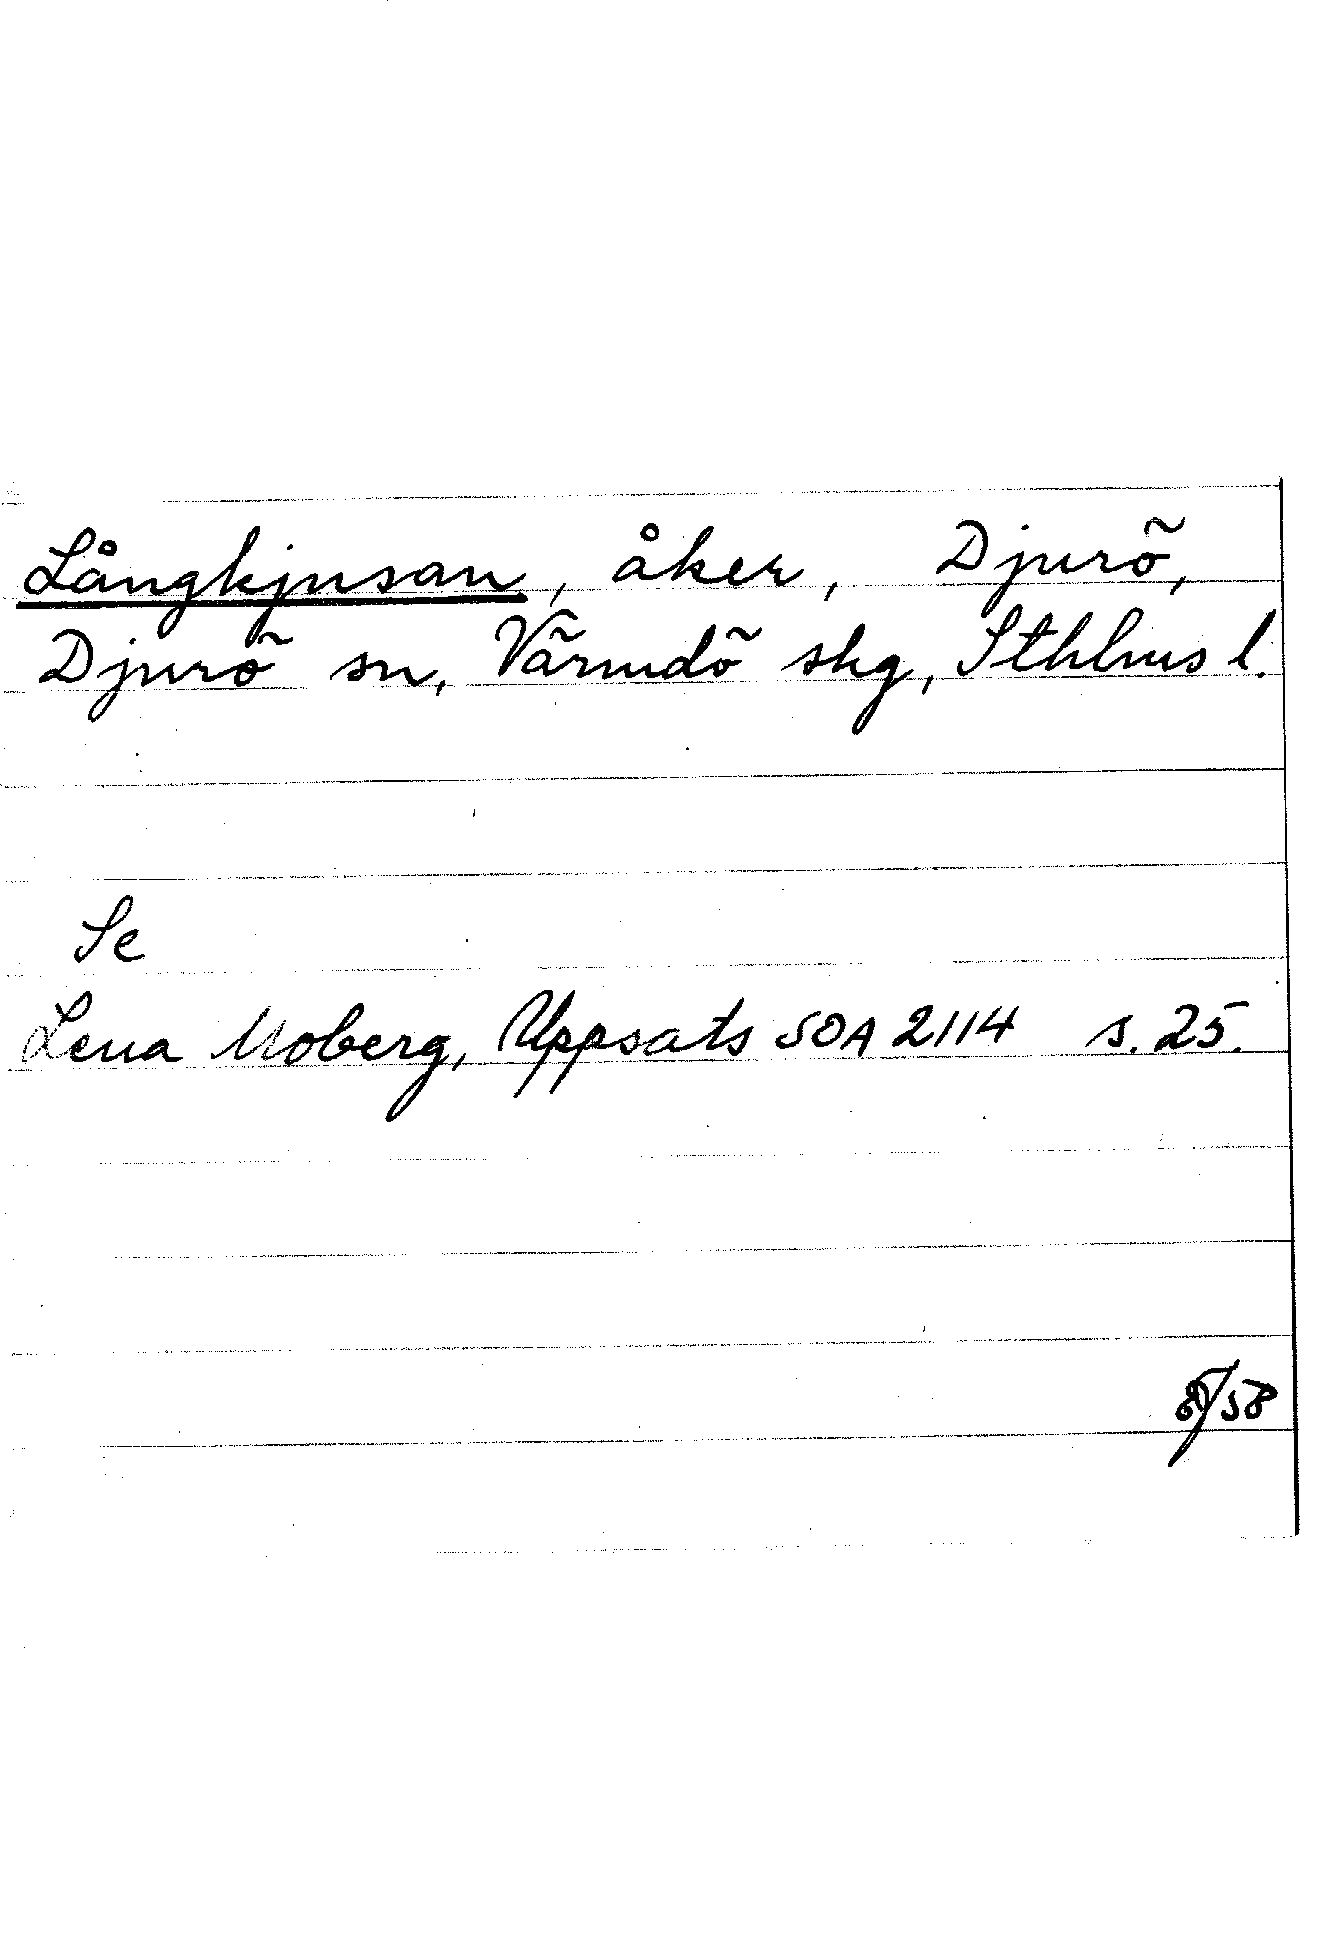 Långkjusan, åker, Djurö,
Djurö sn, Värmdö skg, Sthlms l.
Se
Lena Moberg, Uppsats SOA 2114 s. 25.